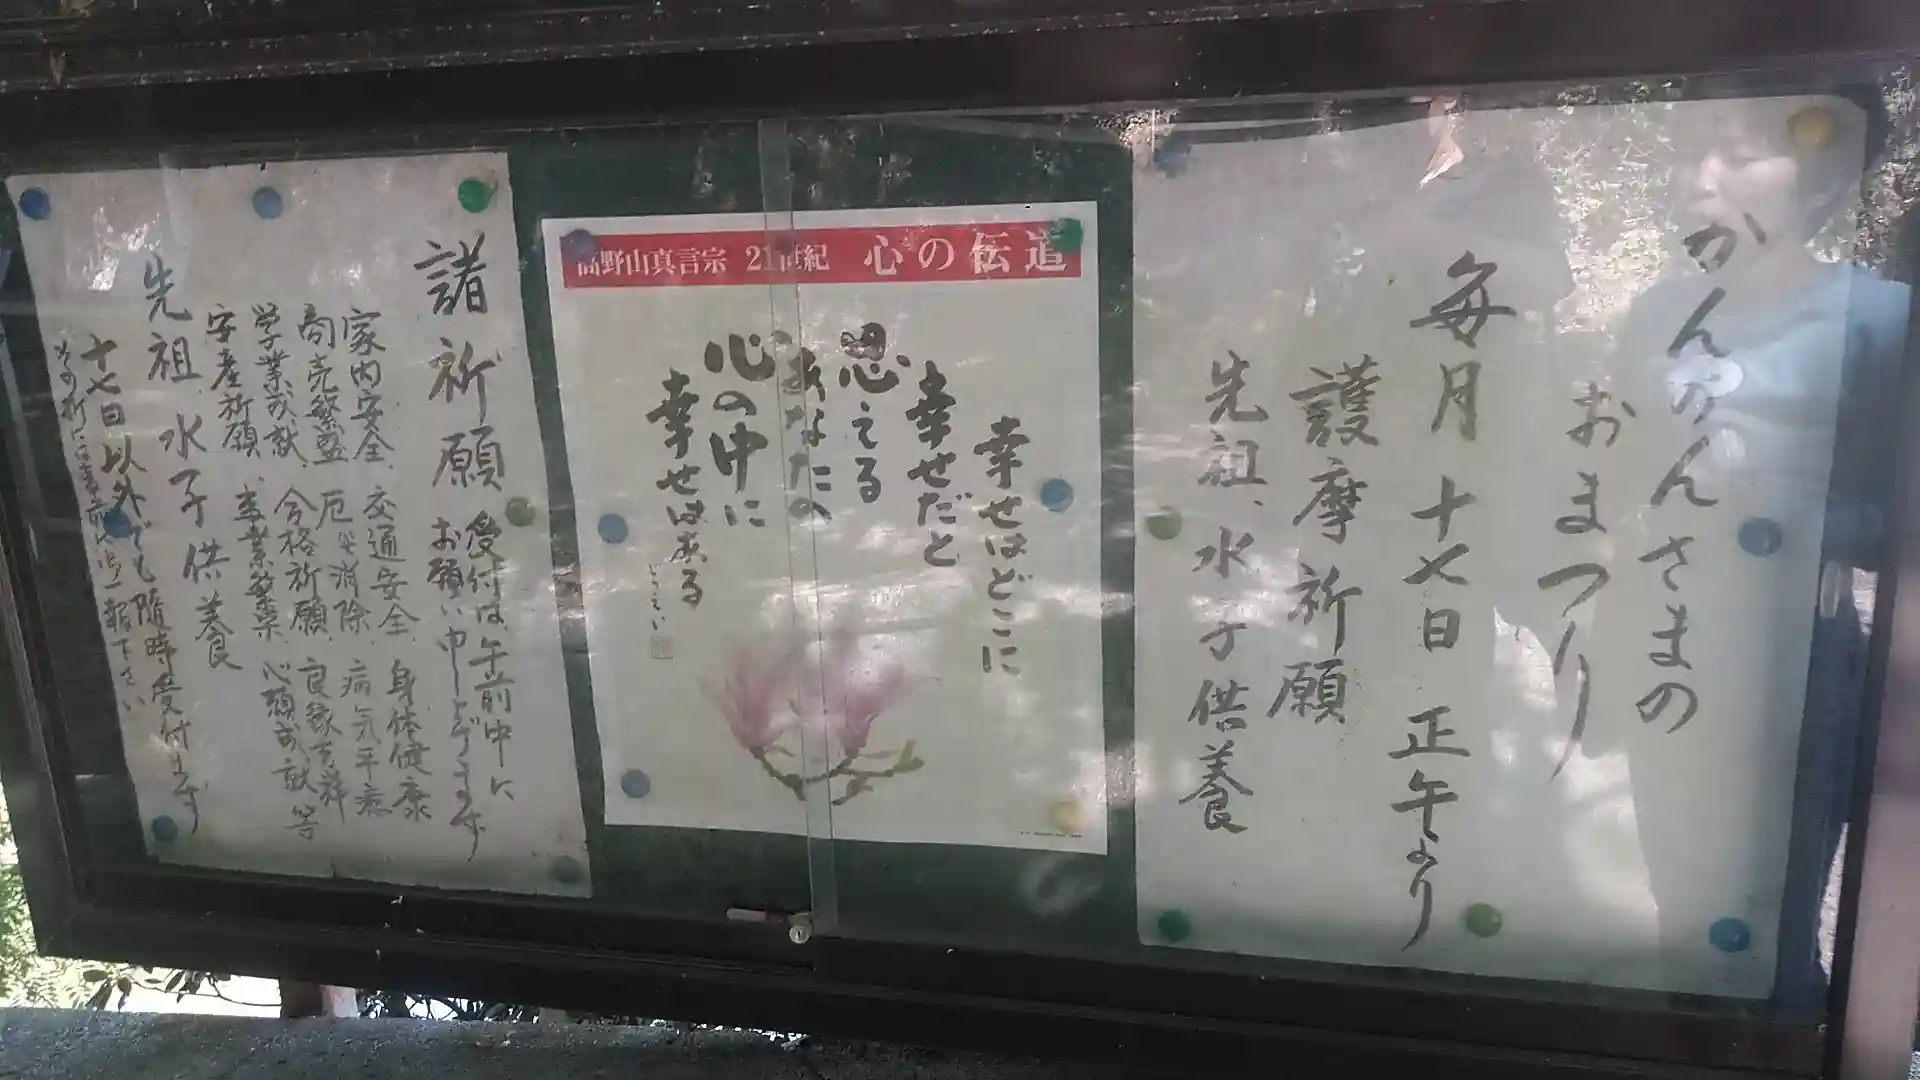 かんかんさまの
おまつり
毎月十七日正午より
護摩祈願
先祖、水子供養
高野山真言宗 21世紀 心の伝道
幸せはどこに
幸せだと
思える
あなたの
心の中に
幸せはある
諸祈願 受付は午前中に
お願い申し上げます
家内安全、交通安全、身体健康
商売繁盛、厄災消除、病気平癒
学業成就、合格祈願、良縁吉祥
安産祈願、事業繁栄、心願成就等
先祖、水子供養
十七日以外でも随時受付ます
その折には事前に御一報下さい